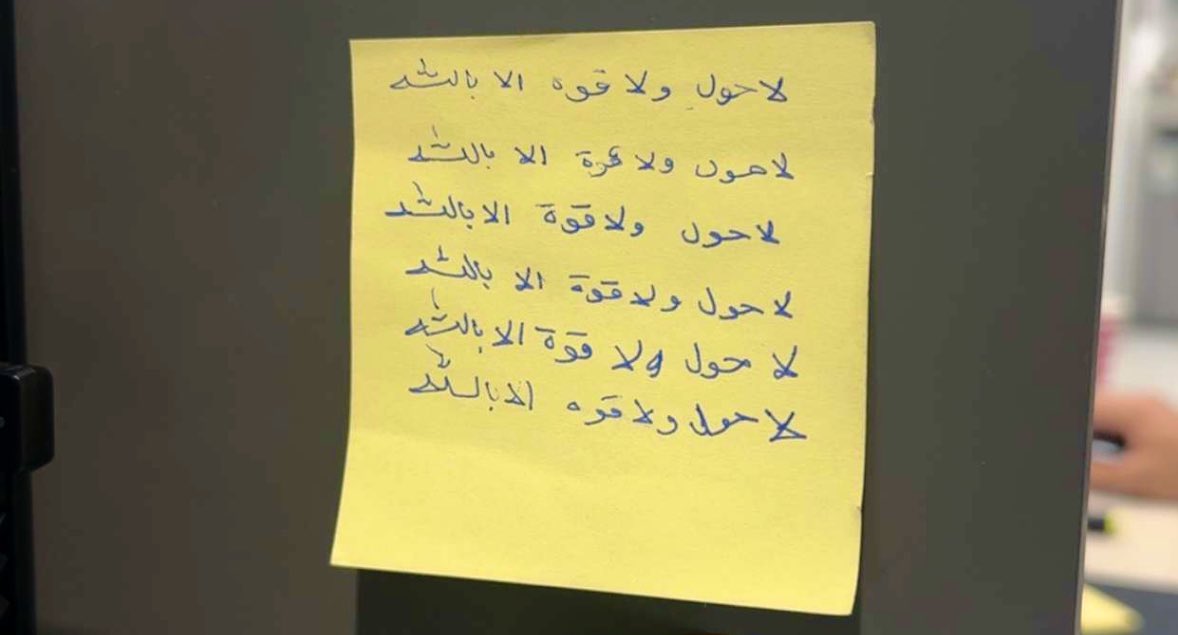 لا حول ولا قوه الا بالله
لا حول ولا قوة الا بالله
لا حول ولا قوة الا بالله
لا حول ولا قوة الا بالله
لا حول ولا قوة الا بالله
لا حول ولا قوه الا بالله